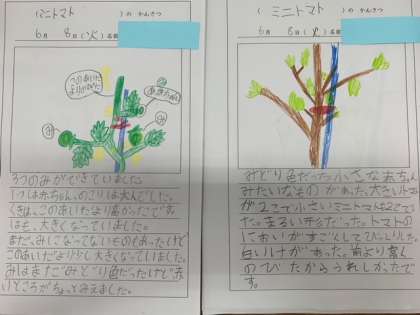 (ミニトマト)のかんさつ
6月 8日(火)名前
このあいだよりのびた
み
み
み
3つのみができていました。
1つは赤ちゃん。のこりは大人でした。
くきは、このあいだより高かったです。
はも、大きくなっていました。
まだ、みになってないものもあったけど
このあいだより少し大きくなっていました。
みはまだみどり色だったけど赤
いところがちょっとみえました。
(ミニトマト)のかんさつ
6月 8日(火)名前
みどり色だった小さな赤ちゃん
みたいなものがあった。大きいトマト
が2こで小さいミニトマトも2こでし
た。まるい形だった。トマトの
においがすごくしてびっくりした。
白いけがあった。前より高く
のびたからうれしかったで
す。